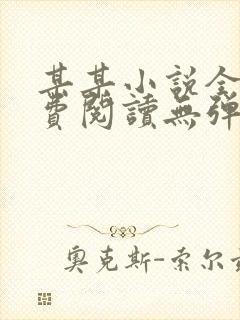 某某小说全
費閱讀無彈
奥克斯-索尔